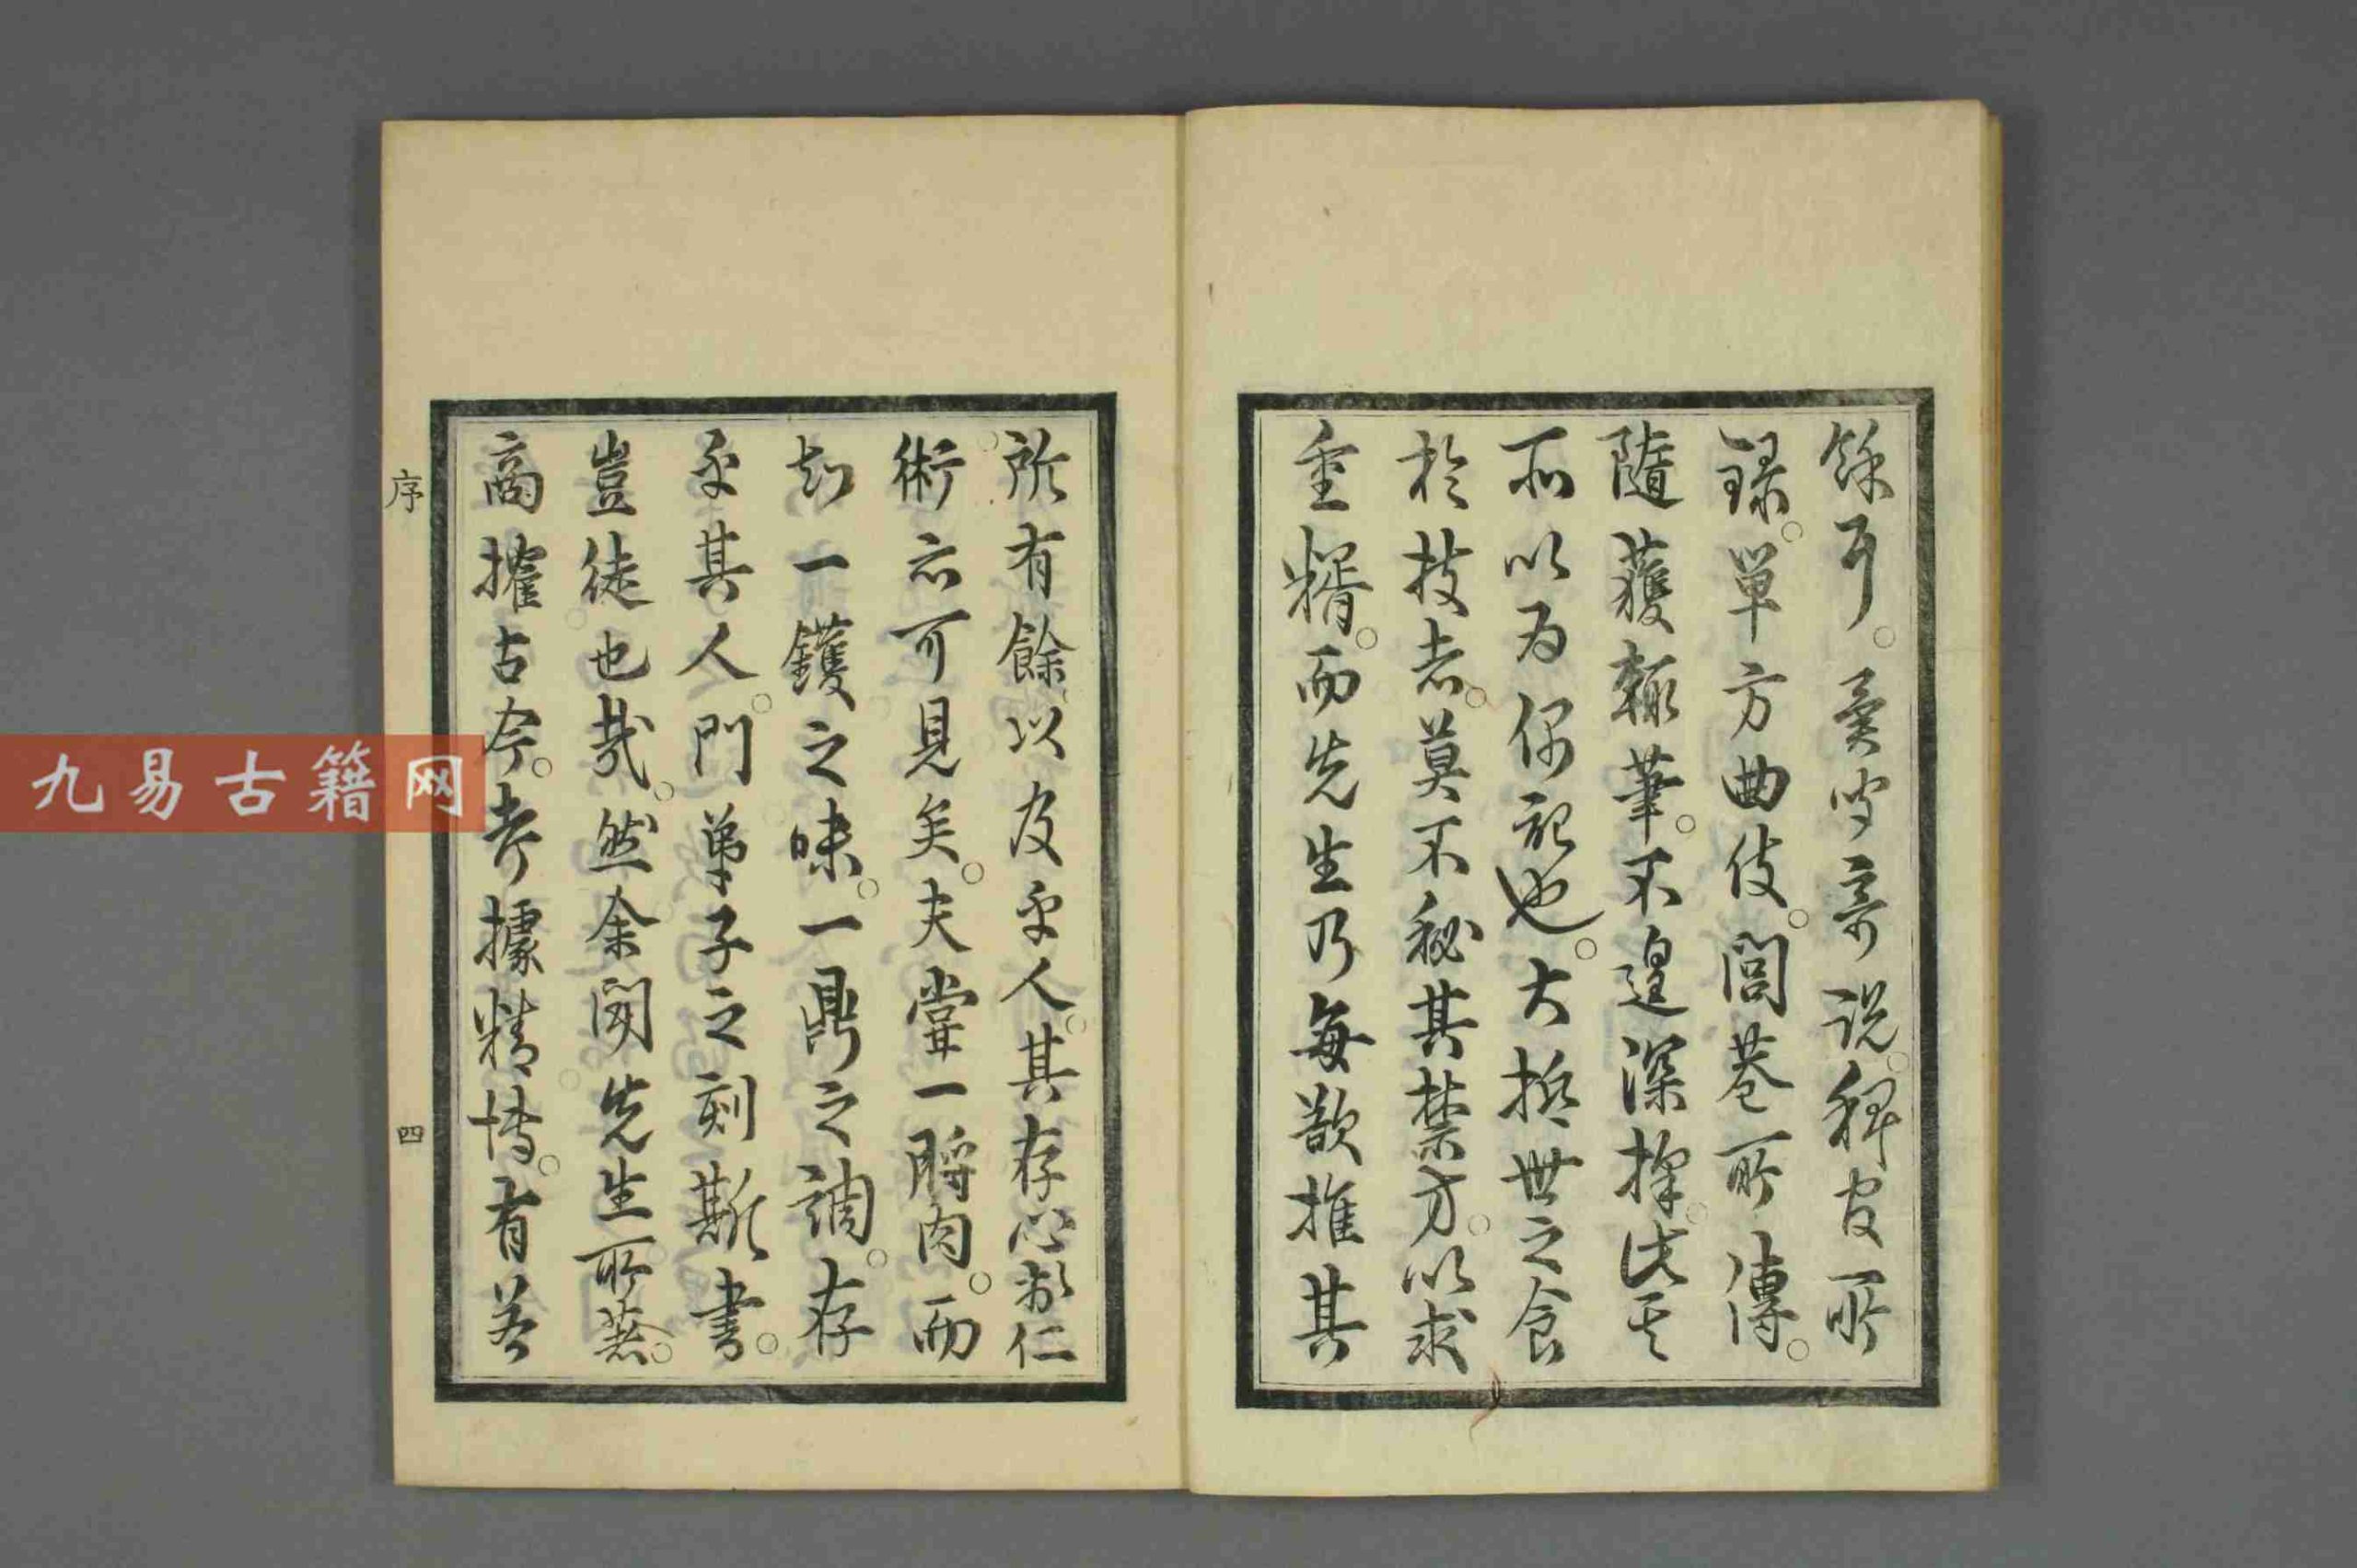 餘耳。異聞奇說。稗官所
錄。單方曲伎。閭巷所傳。
隨獲輒筆。不遑深擇。此其
所以為偶記也。大抵世之食
於技者。莫不秘其禁方。以求
重糈。而先生乃每歡推其
所有餘。以及乎人。其存心於仁
術。亦可見矣。夫嘗一臠肉。而
知一鑊之味。一鼎之調。存
乎其人。門弟子之刻斯書。
豈徒也哉。然余聞先生所著。
商搉古今。考據精博。有若
序
四
九易古籍网